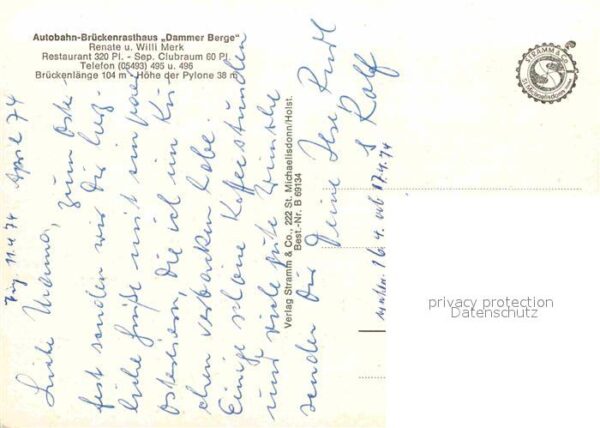 Autobahn-Brückenrasthaus „Dammer Berge"
Renate u. Willi Merk
Restaurant 320 Pl. - Sep. Clubraum 60 Pl.
Telefon (05493) 495 u. 496
Brückenlänge 104 m - Höhe der Pylone 38 m
STRAMM & Co.
St. Michaelisdonn
Verlag Stramm & Co., 222 St. Michaelisdonn/Holst.
Best.-Nr. B 69134
11.4.74 April 74
Liebe Mama, zum Oster-
fest senden wir dir herz-
liche Grüße mit ein paar
Ostereiern, die ich im Ku-
chen verbacken habe.
Einige schöne Kaffeestunden
und viele gute Wünsche
senden Dir
Deine Ilse
& Rolf
16.4. 17.4.74
privacy protection
Datenschutz